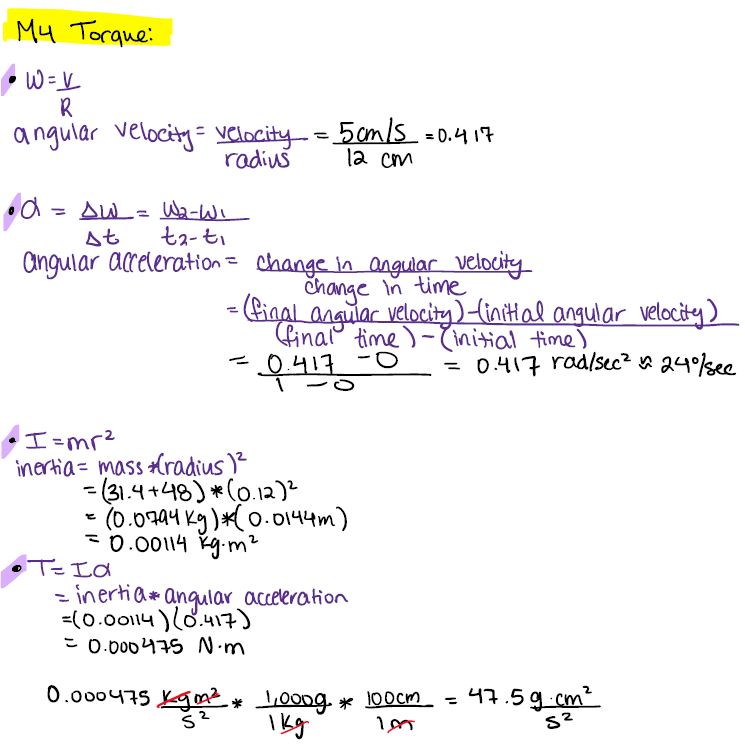 M4 Torque:
• W = V/R
angular velocity = velocity/radius = 5cm/s / 12 cm = 0.417
• α = Δw/Δt = W2-W1 / t2-t1
angular acceleration = change in angular velocity / change in time
= (final angular velocity)-(initial angular velocity) / (final time) - (initial time)
= 0.417 - 0 / 1 - 0 = 0.417 rad/sec² ≈ 24°/sec
• I = mr²
inertia = mass *(radius)²
= (31.4+48) * (0.12)²
= (0.0794 kg) * (0.0144m)
= 0.00114 kg·m²
• T = Iα
= inertia * angular acceleration
= (0.00114)(0.417)
= 0.000475 N·m
0.000475 kgm²/s² * 1,000g/1kg * 100cm/1m = 47.5 g·cm²/s²